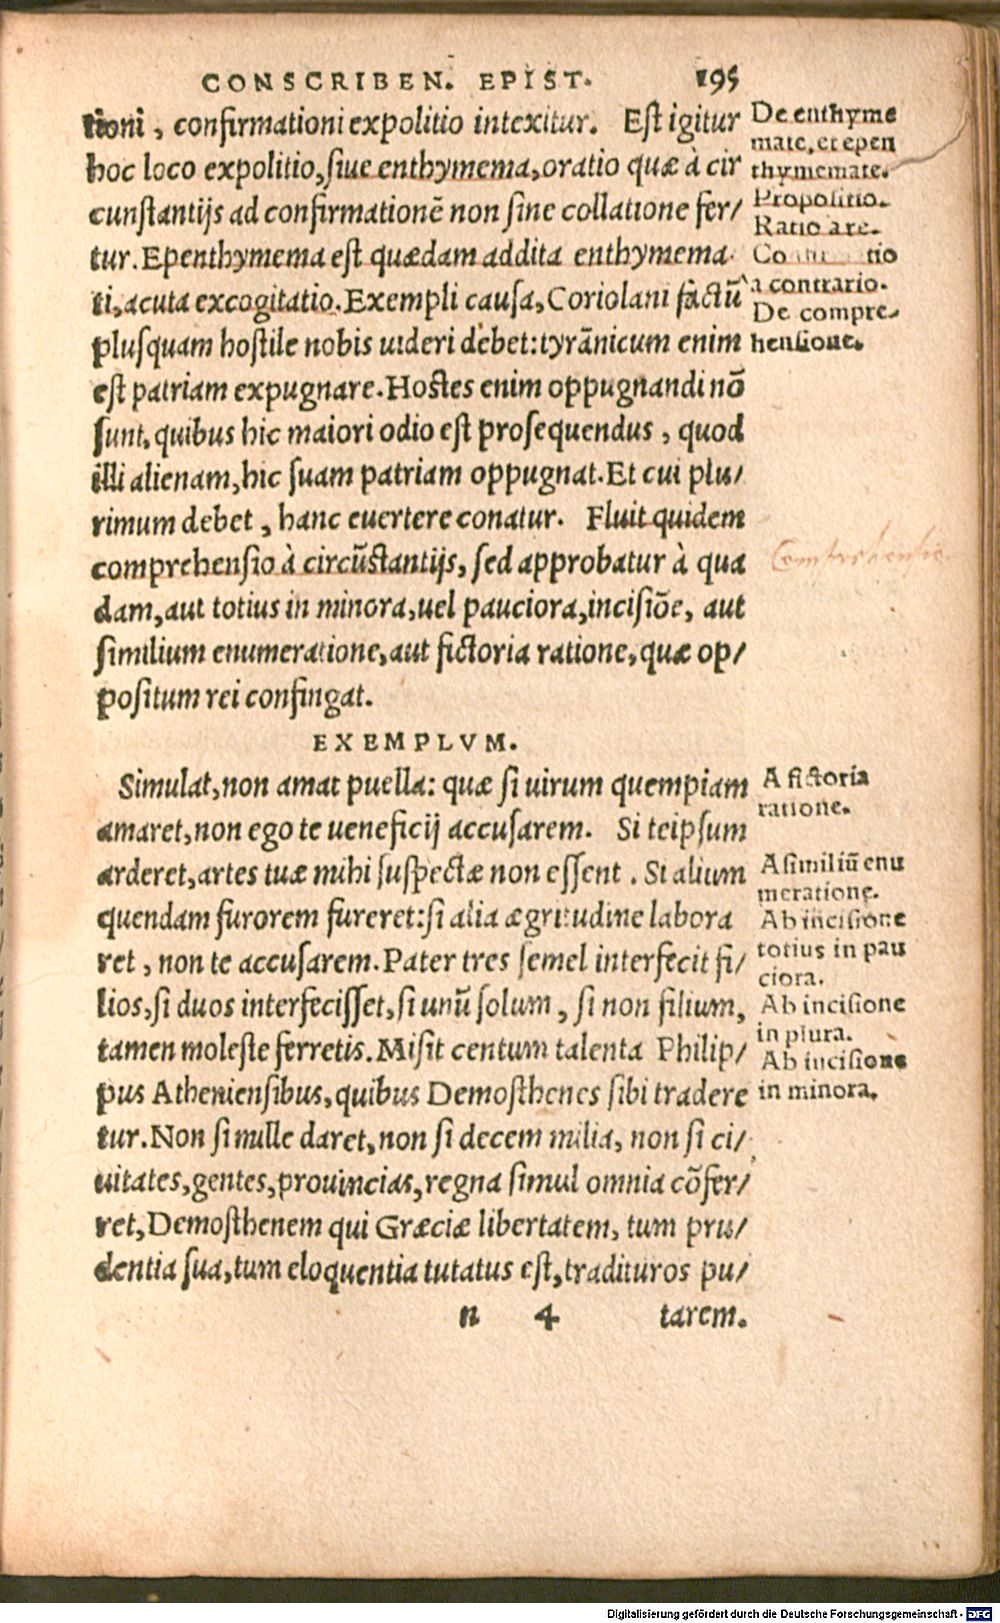 CONSCRIBEN. EPIST. 195
tioni, confirmationi expolitio intexitur. Est igitur
hoc loco expolitio, siue enthymema, oratio quæ à cir
cunstantijs ad confirmationē non sine collatione fer/
tur. Epenthymema est quædam addita enthymema
ti, acuta excogitatio. Exempli causa, Coriolani factū
plusquam hostile nobis uideri debet: tyrānicum enim
est patriam expugnare. Hostes enim oppugnandi nō
sunt, quibus hic maiori odio est prosequendus, quod
illi alienam, hic suam patriam oppugnat. Et cui plu/
rimum debet, hanc euertere conatur. Fluit quidem
comprehensio à circūstantijs, sed approbatur à qua
dam, aut totius in minora, uel pauciora, incisiōe, aut
similium enumeratione, aut fictoria ratione, quæ op/
positum rei confingat.
EXEMPLVM.
Simulat, non amat puella: quæ si uirum quempiam
amaret, non ego te ueneficij accusarem. Si teipsum
arderet, artes tuæ mihi suspectæ non essent. Si alium
quendam furorem fureret: si alia ægritudine labora
ret, non te accusarem. Pater tres semel interfecit fi/
lios, si duos interfecisset, si unū solum, si non filium,
tamen moleste ferretis. Misit centum talenta Philip/
pus Atheniensibus, quibus Demosthenes sibi tradere
tur. Non si mille daret, non si decem milia, non si ci/
uitates, gentes, prouincias, regna simul omnia cōfer/
ret, Demosthenem qui Græciæ libertatem, tum pru/
dentia sua, tum eloquentia tutatus est, tradituros pu/
n 4 tarem.
De enthyme
mate, et epen
thymemate.
Propositio.
Ratio a re.
a contrario.
De compre-
hensione.
Comprehensio
A fictoria
ratione.
A similiū enu
meratione.
Ab incisione
totius in pau
ciora.
Ab incisione
in plura.
Ab incisione
in minora.
Digitalisierung gefördert durch die Deutsche Forschungsgemeinschaft - DFG